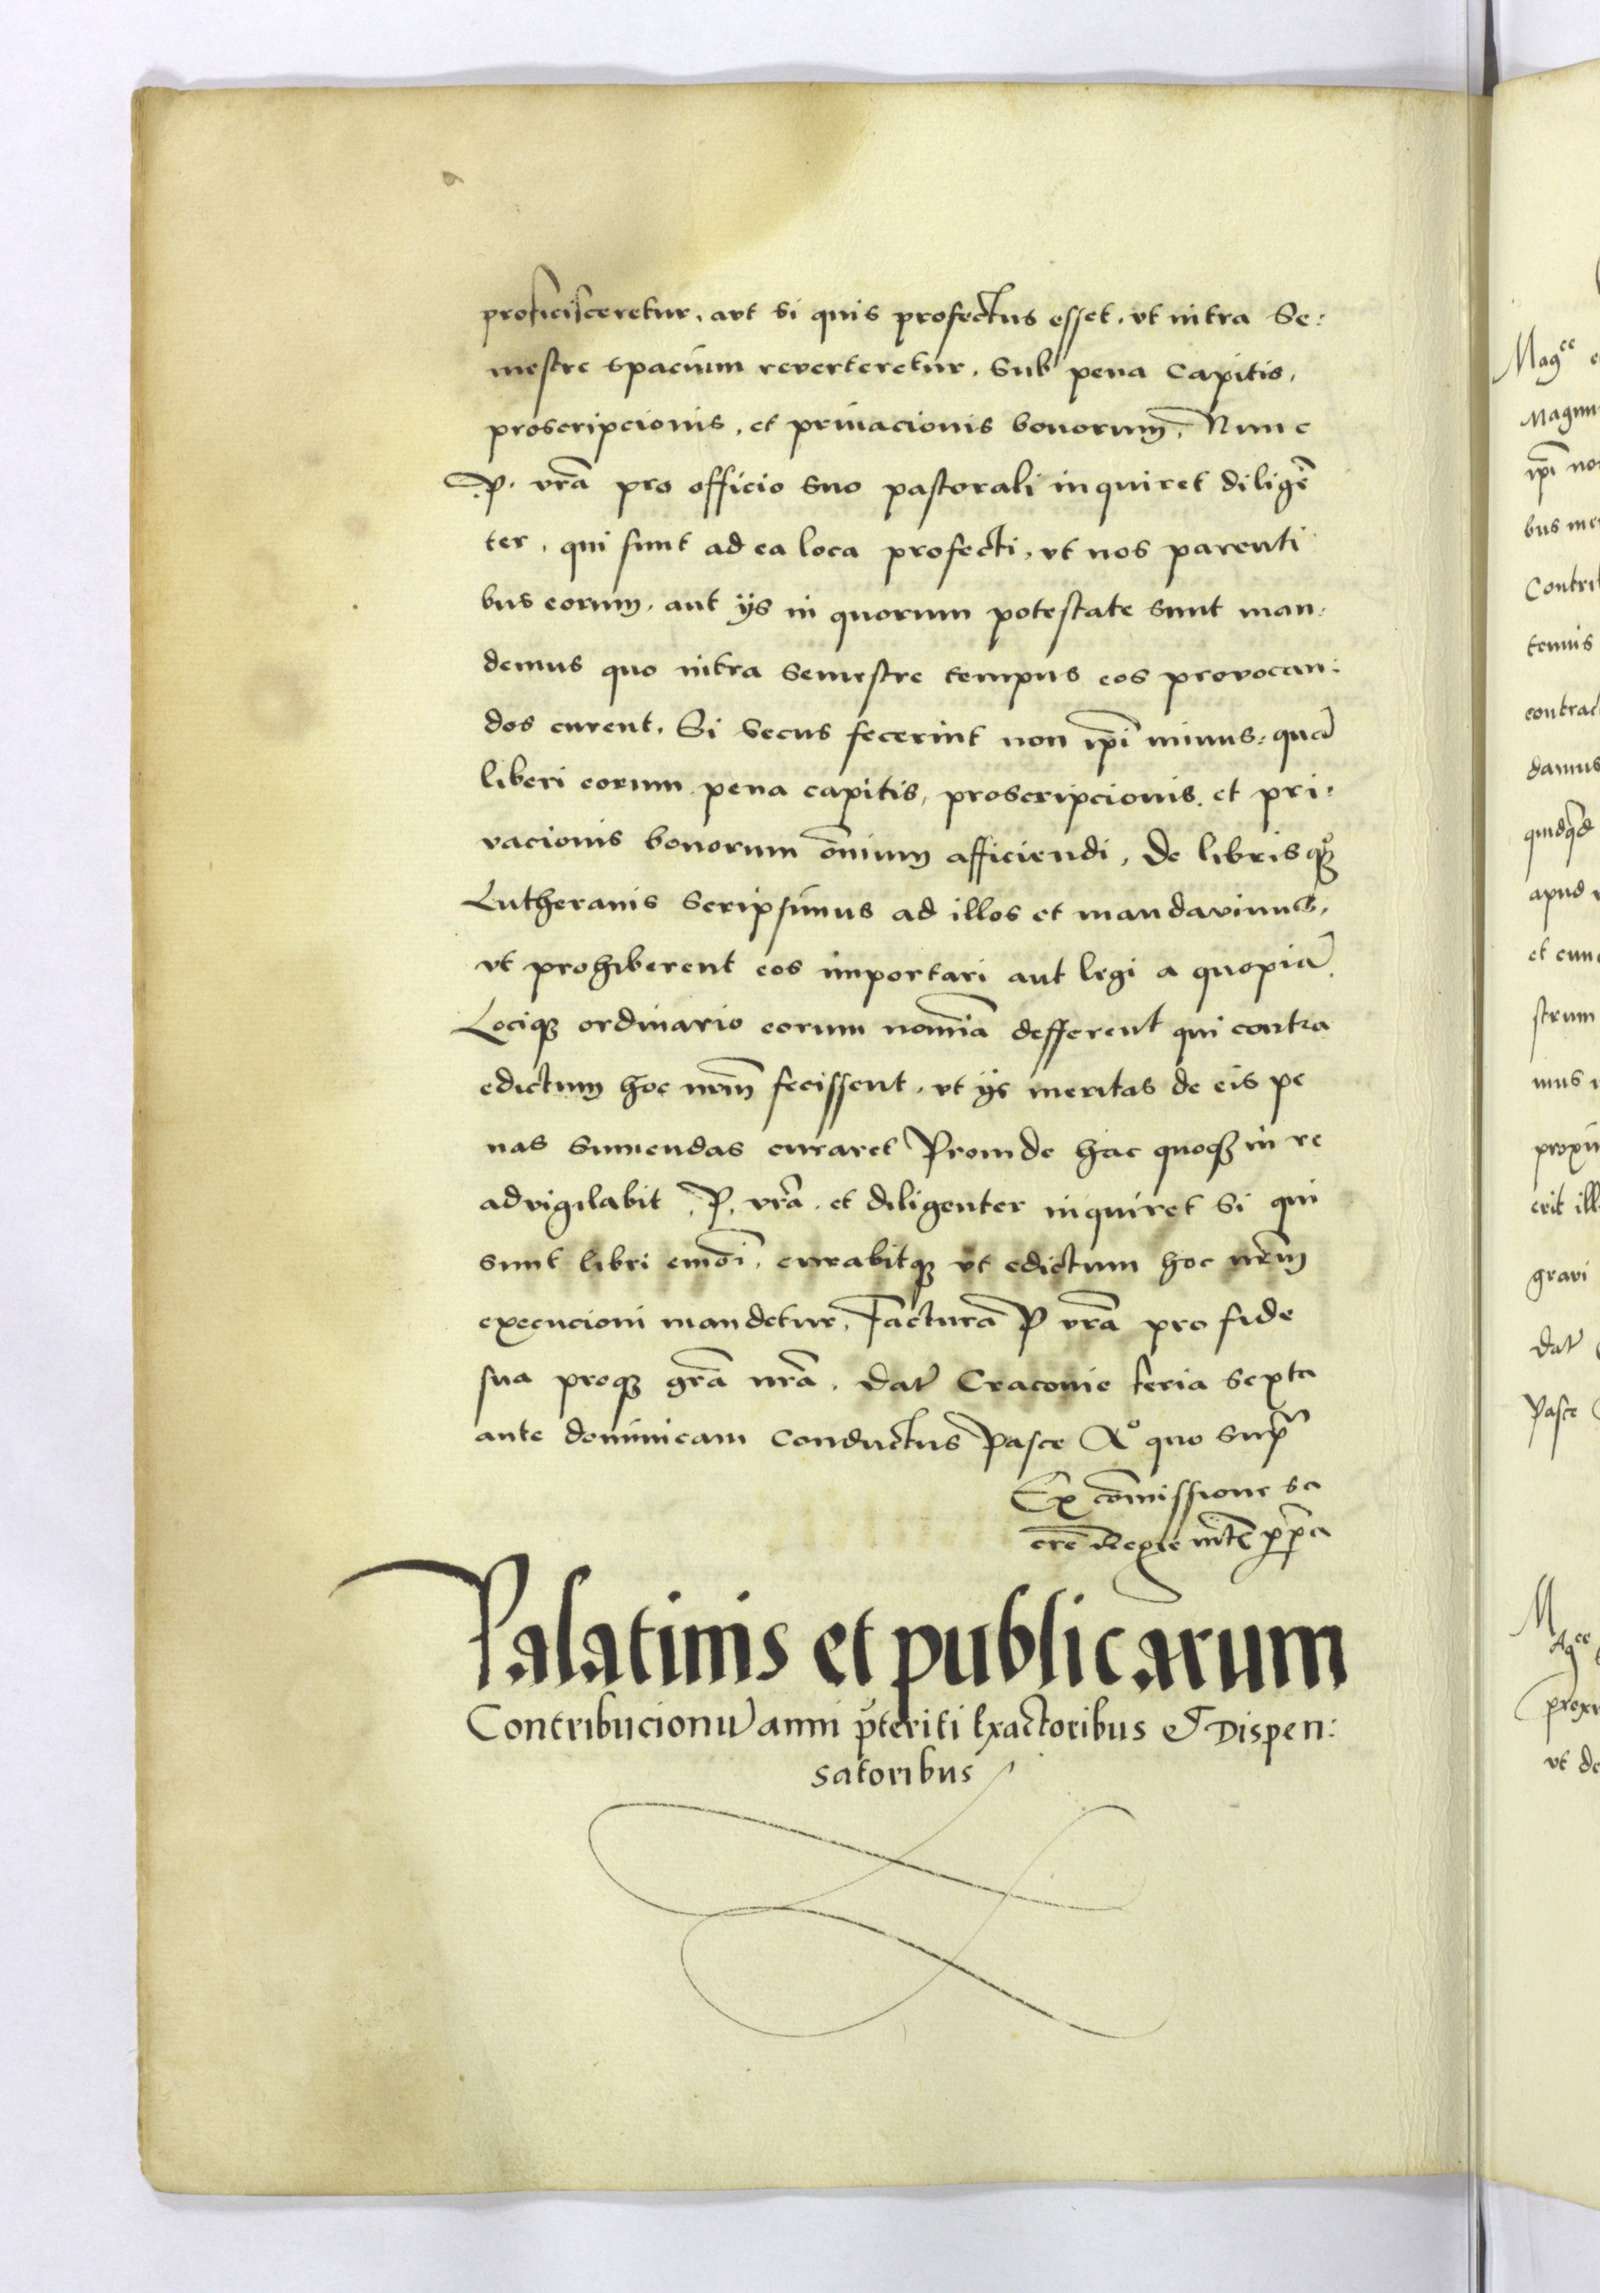 proficisceretur, aut si quis profectus esset, ut intra Se:
mestre spacium reverteretur, sub pena Capitis,
proscripcionis, et privacionis bonorum, Nunc
.P. vrã pro officio suo pastorali inquiret diligẽ
ter, qui sunt ad ea loca profecti, ut nos parenti
bus eorum, aut ijs in quorum potestate sunt man:
demus quo intra semestre tempus eos provocan:
dos curent, Si secus fecerint non ip̃i minus: quã
liberi eorum pena capitis, proscripcionis, et pri:
vacionis bonorum õnium afficiendi, De libris qʒ
Lutheranis scripsimus ad illos et mandavimus,
ut prohiberent eos importari aut legi a quopiã,
Lociqʒ ordinario eorum nomĩa defferent qui contra
edictum hoc nr̃m fecissent, ut ijs meritas de eis pe
nas sumendas curaret Proinde hac quoqʒ in re
advigilabit .P. vrã. et diligenter inquiret si qui
sunt libri em̃oi, curabitqʒ ut edictum hoc nr̃m
execucioni mandetur, Facturã P vrã pro fide
sua proqʒ grã nrã. Dat̃ Cracovie feria sexta
ante dominicam Conductus Pasce Aº quo supr̃
Ex com̃issione sa
cre Regie mt̃ẽ ppr̃a
Palatinis et publicarum
Contribucionũ anni p̃teriti Exactoribus et Dispen:
satoribus
Mag^ce
Magnu
ip̃i no
bus me
Contri
tenus
contrac
damus
quidq̃d
apud
et cun
strum
mus
proxi
erit ill
gravi
Dat̃
Pasce
Mag^ce
prox
ut de